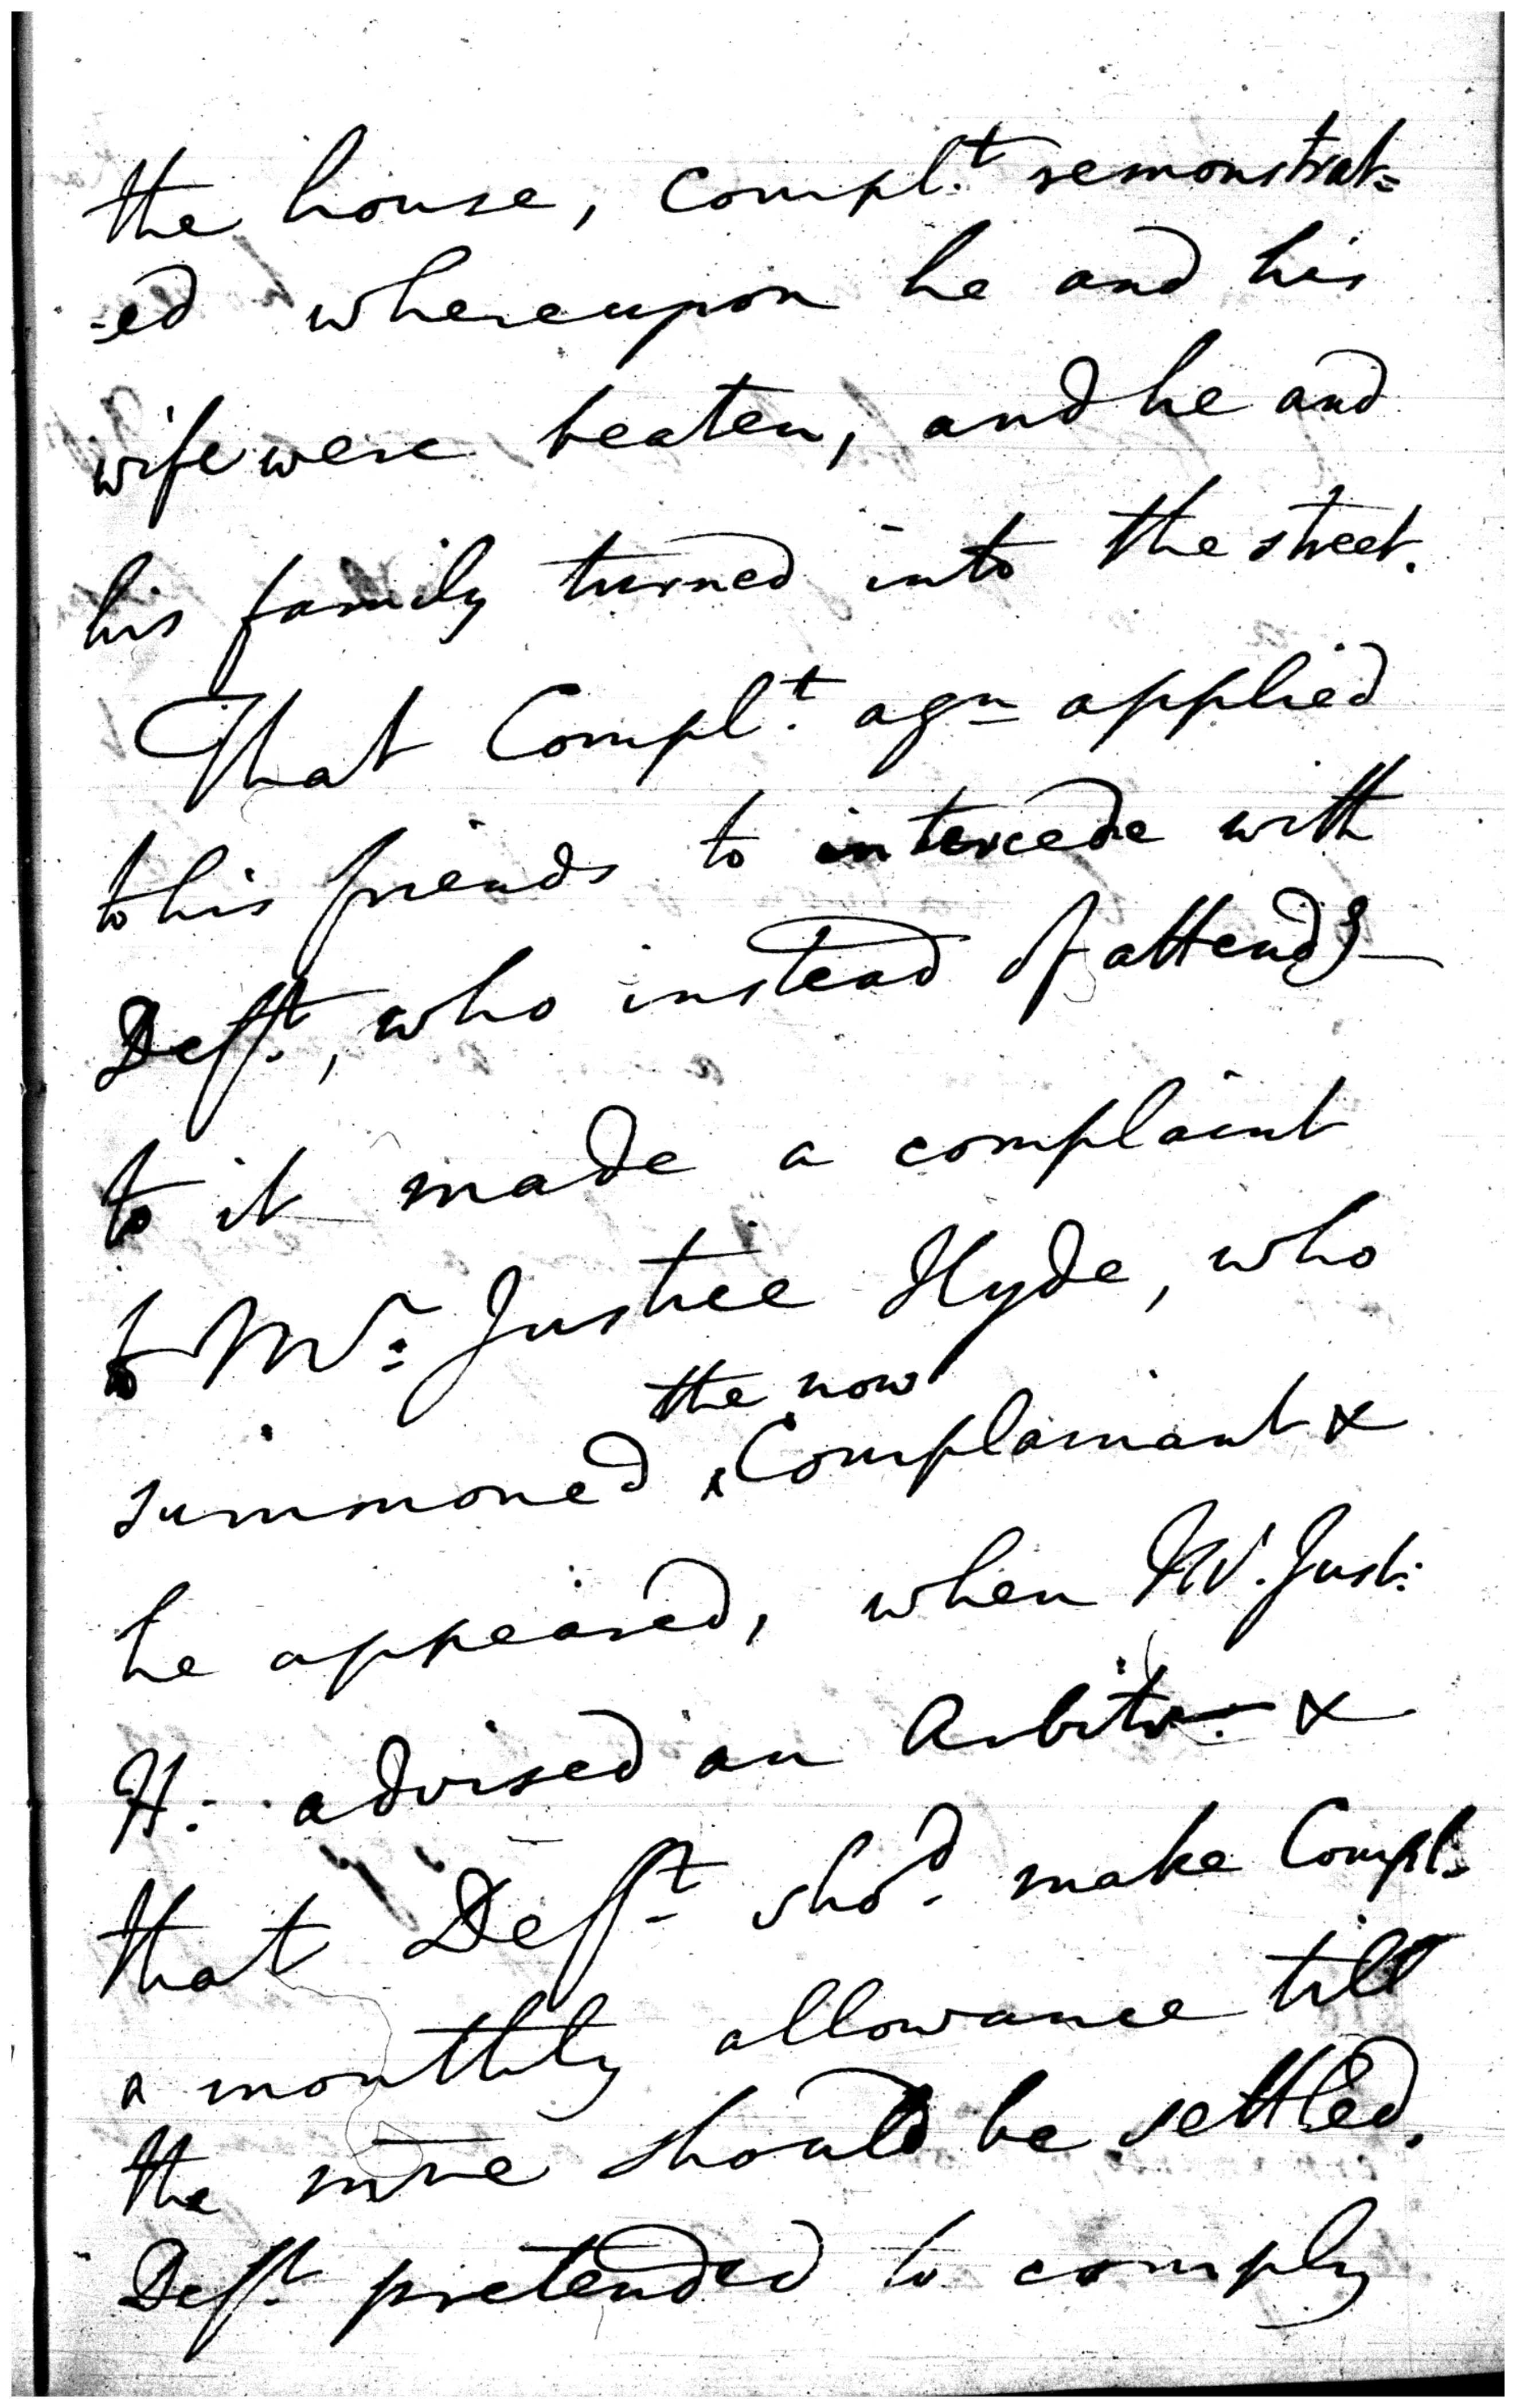 the house, Compl.t remonstrat=
=ed whereupon he and his
wife were beaten, and he and
his family turned into the street.
That Compl.t agn applied
to his friends to intercede with
Deft., who instead of attendg
to it made a complaint
to Mr. Justice Hyde, who
the now
summoned ^ Complainant &
he appeared, when Mr. Just:
H: advised an Arbitr. &
that Deft. shod. make Compl.
a monthly allowance till
the same should be settled.
Deft. pretended to comply